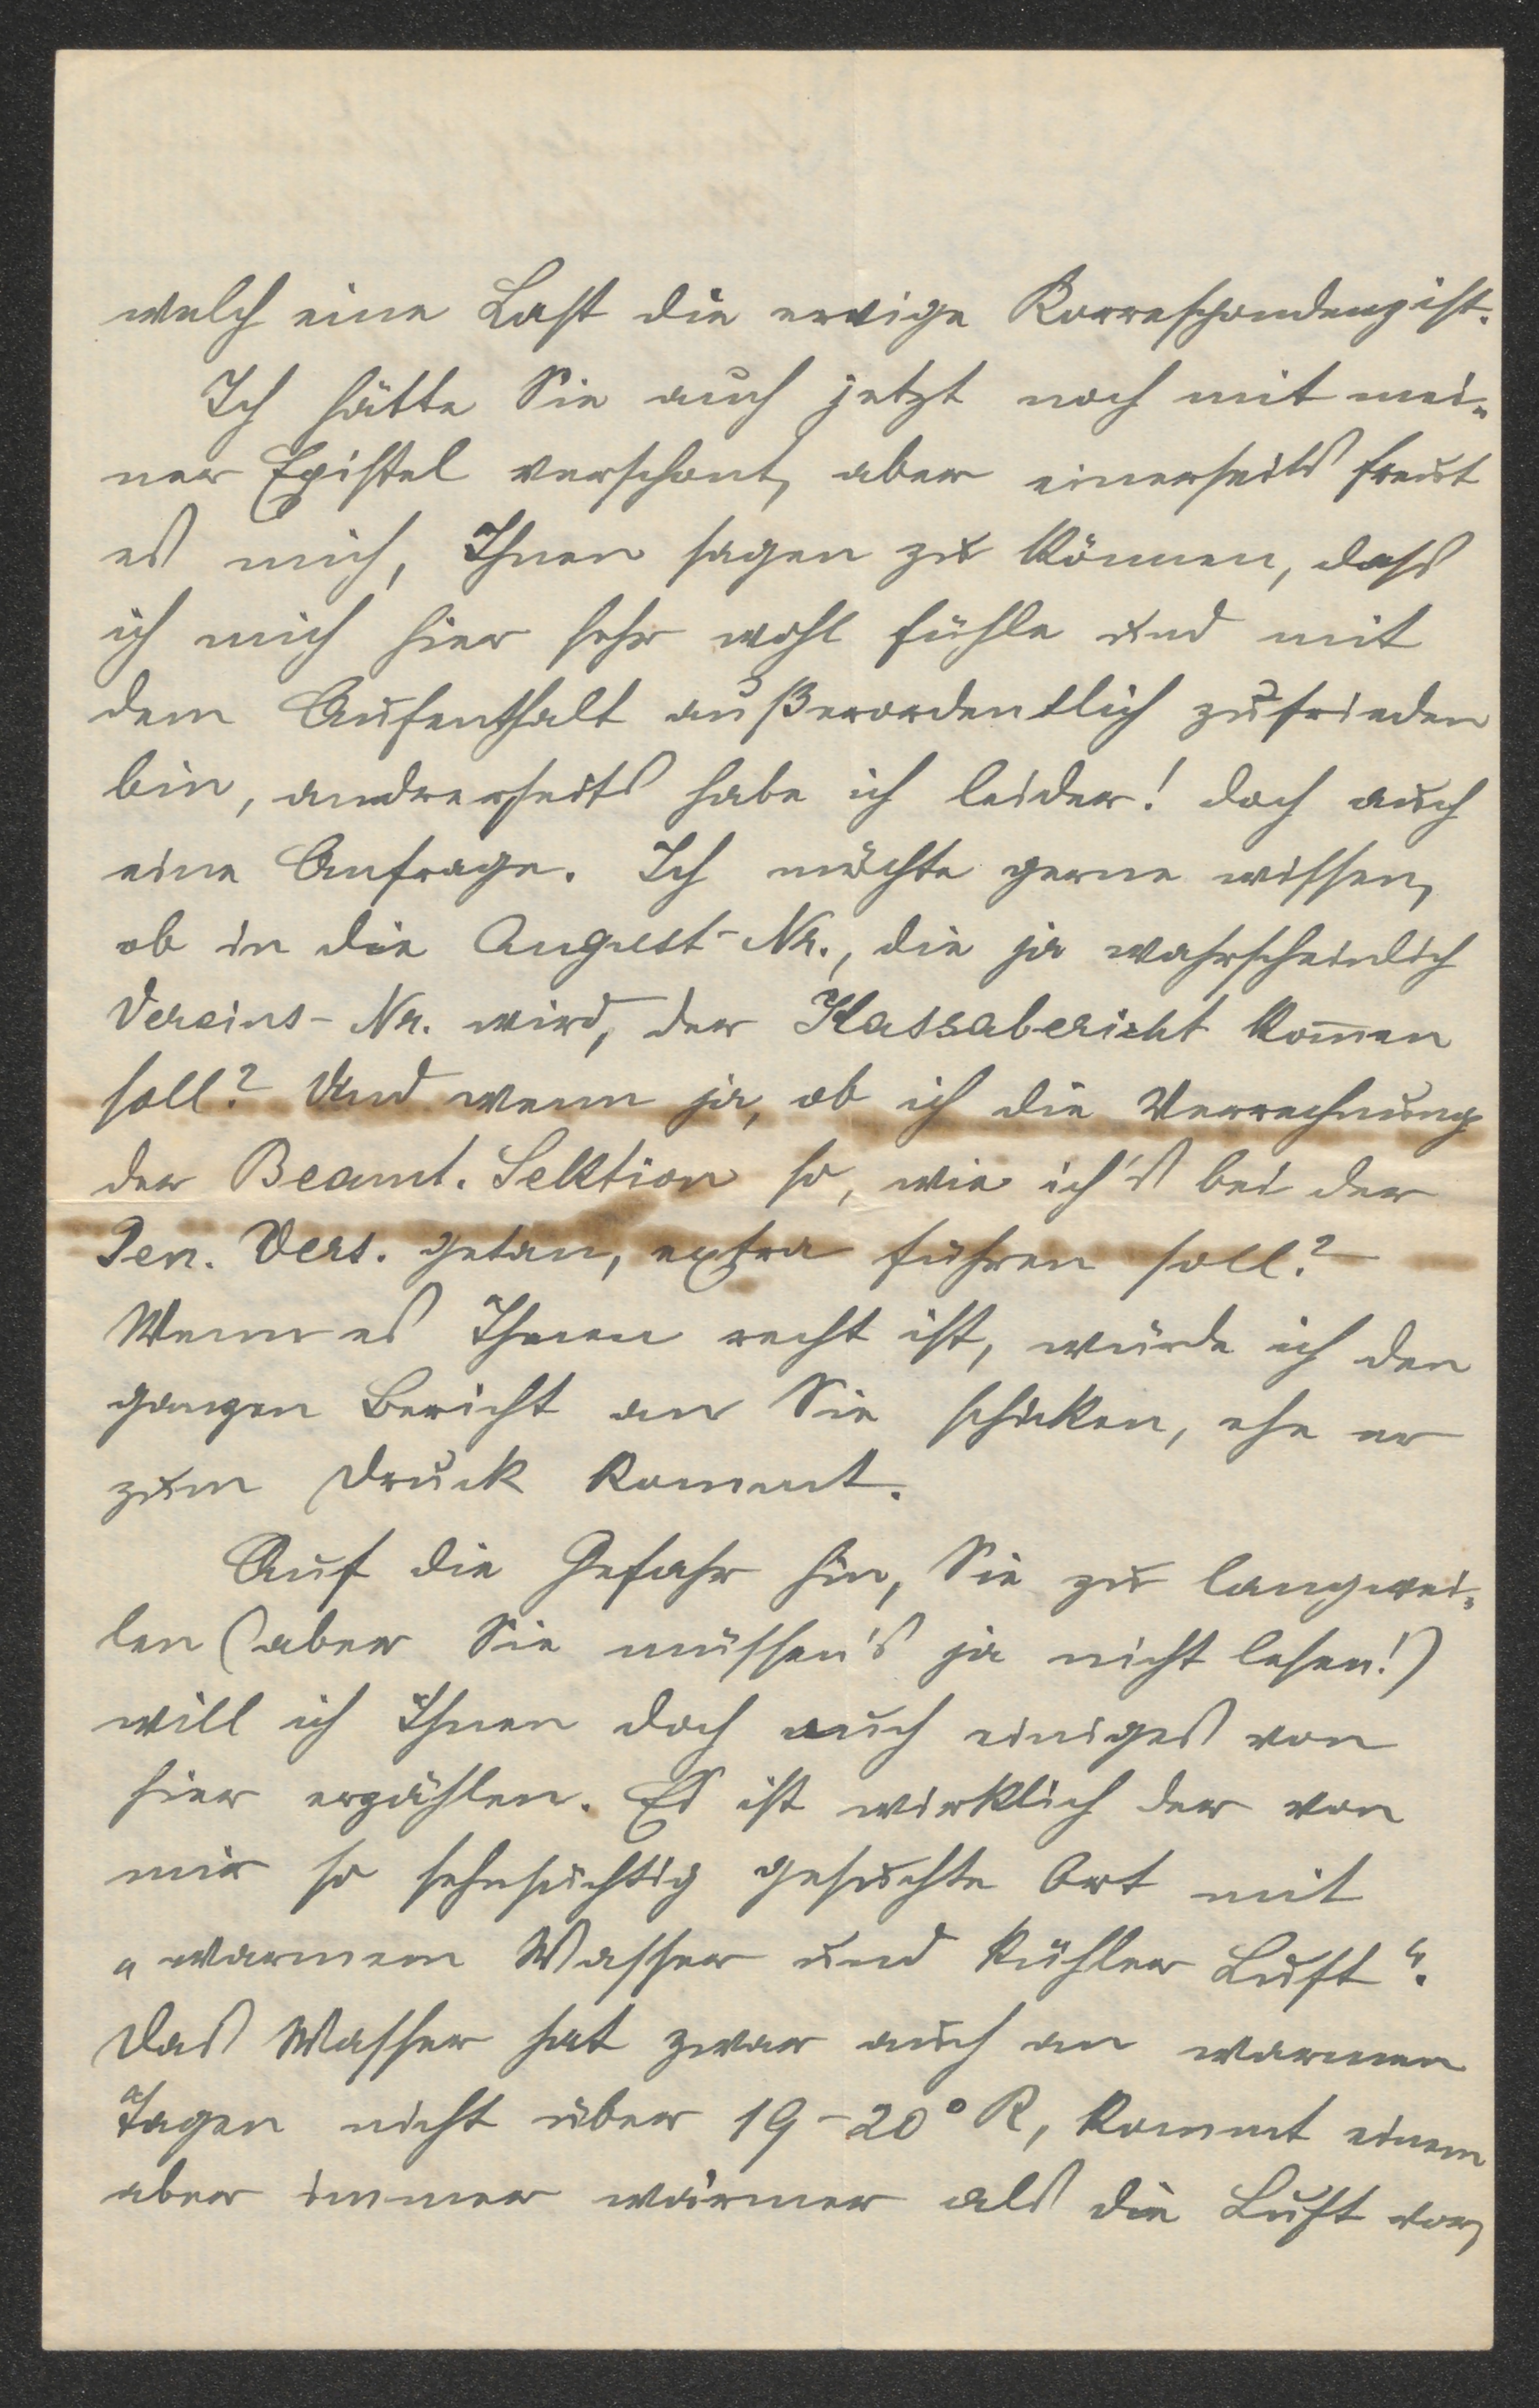 welch eine Last die ewige Korrespondenz ist.
Ich hätte Sie auch jetzt noch mit mei-
ner Epistel verschont, aber einerseits freut
es mich, Ihnen sagen zu können, dass
ich mich hier sehr wohl fühle und mit
dem Aufenthalt außerordentlich zufrieden
bin, andrerseits habe ich leider! doch auch
eine Anfrage. Ich möchte gerne wissen,
ob in die August-Nr., die ja wahrscheinlich
Vereins-Nr. wird, der Kassabericht kom̅en
soll? Und wenn ja, ob ich die Verrechnung
der Beamt. Sektion so, wie ich's bei der
Gen. Vers. getan, extra führen soll?
Wenn es Ihnen recht ist, würde ich den
ganzen Bericht an Sie schicken, ehe er
zum Druck kommt.
Auf die Gefahr hin, Sie zu langwei-
len (aber Sie müssen's ja nicht lesen!)
will ich Ihnen doch auch einiges von
hier erzählen. Es ist wirklich der von
mir so sehnsüchtig gesuchte Ort mit
„warmem Wasser und kühler Luft“.
Das Wasser hat zwar auch an warmen
Tagen nicht über 19-20° R, kommt einem
aber immer wärmer als die Luft vor,